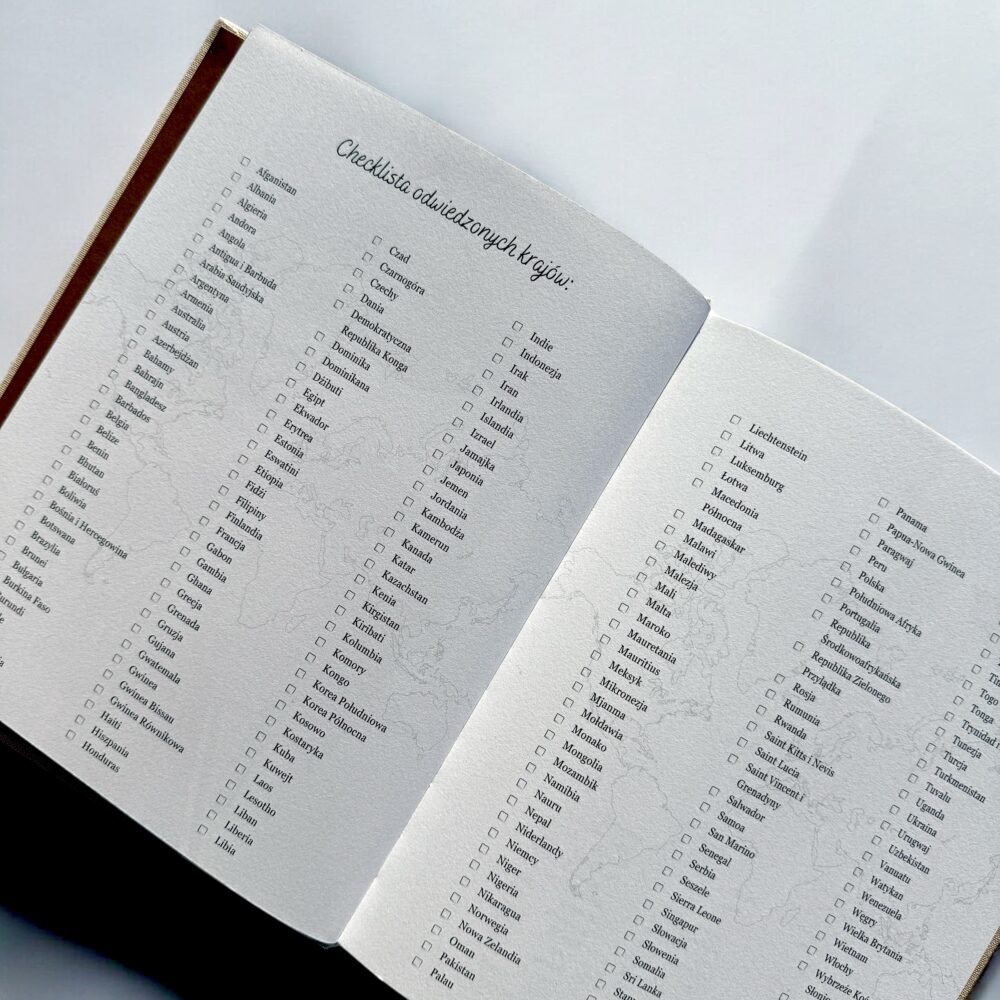 Checklista odwiedzonych krajów:
Afganistan
Albania
Algieria
Andora
Angola
Antigua i Barbuda
Arabia Saudyjska
Argentyna
Armenia
Australia
Austria
Azerbejdżan
Bahamy
Bahrajn
Bangladesz
Barbados
Belgia
Belize
Benin
Bhutan
Białoruś
Boliwia
Bośnia i Hercegowina
Botswana
Brazylia
Brunei
Bułgaria
Burkina Faso
Czad
Czarnogóra
Czechy
Dania
Demokratyczna
Republika Konga
Dominika
Dominikana
Dżibuti
Egipt
Ekwador
Erytrea
Estonia
Eswatini
Etiopia
Fidżi
Filipiny
Finlandia
Francja
Gabon
Gambia
Ghana
Grecja
Grenada
Gruzja
Gujana
Gwatemala
Gwinea
Gwinea Bissau
Gwinea Równikowa
Haiti
Hiszpania
Honduras
Indie
Indonezja
Irak
Iran
Irlandia
Islandia
Izrael
Jamajka
Japonia
Jemen
Jordania
Kambodża
Kamerun
Kanada
Katar
Kazachstan
Kenia
Kirgistan
Kiribati
Kolumbia
Komory
Kongo
Korea Południowa
Korea Północna
Kosowo
Kostaryka
Kuba
Kuwejt
Laos
Lesotho
Liban
Liberia
Libia
Liechtenstein
Litwa
Luksemburg
Łotwa
Macedonia
Północna
Madagaskar
Malawi
Malediwy
Malezja
Mali
Malta
Maroko
Mauretania
Mauritius
Meksyk
Mikronezja
Mjanma
Mołdawia
Monako
Mongolia
Mozambik
Namibia
Nauru
Nepal
Niderlandy
Niemcy
Niger
Nigeria
Nikaragua
Norwegia
Nowa Zelandia
Oman
Pakistan
Palau
Panama
Papua-Nowa Gwinea
Paragwaj
Peru
Polska
Południowa Afryka
Portugalia
Republika
Środkowoafrykańska
Republika Zielonego
Przylądka
Rosja
Rumunia
Rwanda
Saint Kitts i Nevis
Saint Lucia
Saint Vincent i
Grenadyny
Salwador
Samoa
San Marino
Senegal
Serbia
Seszele
Sierra Leone
Singapur
Słowacja
Słowenia
Somalia
Sri Lanka
Togo
Tonga
Trynidad
Tunezja
Turcja
Turkmenistan
Tuvalu
Uganda
Ukraina
Urugwaj
Uzbekistan
Vanuatu
Watykan
Wenezuela
Węgry
Wielka Brytania
Wietnam
Włochy
Wybrzeże